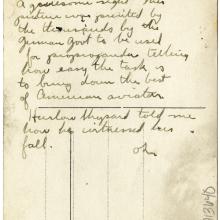 A gruesome sight this
picture was printed by
the thousands by the
German Govt to be used
for propaganda telling
how easy the task is
to bring down the best
of American aviator
Harlow told me
how he witnessed his
fall.